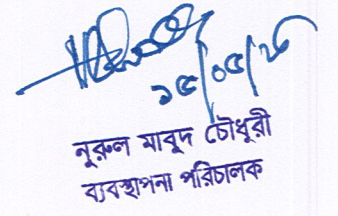 ১৫/০৫/২৫
নুরুল মাবুদ চৌধুরী
ব্যবস্থাপনা পরিচালক